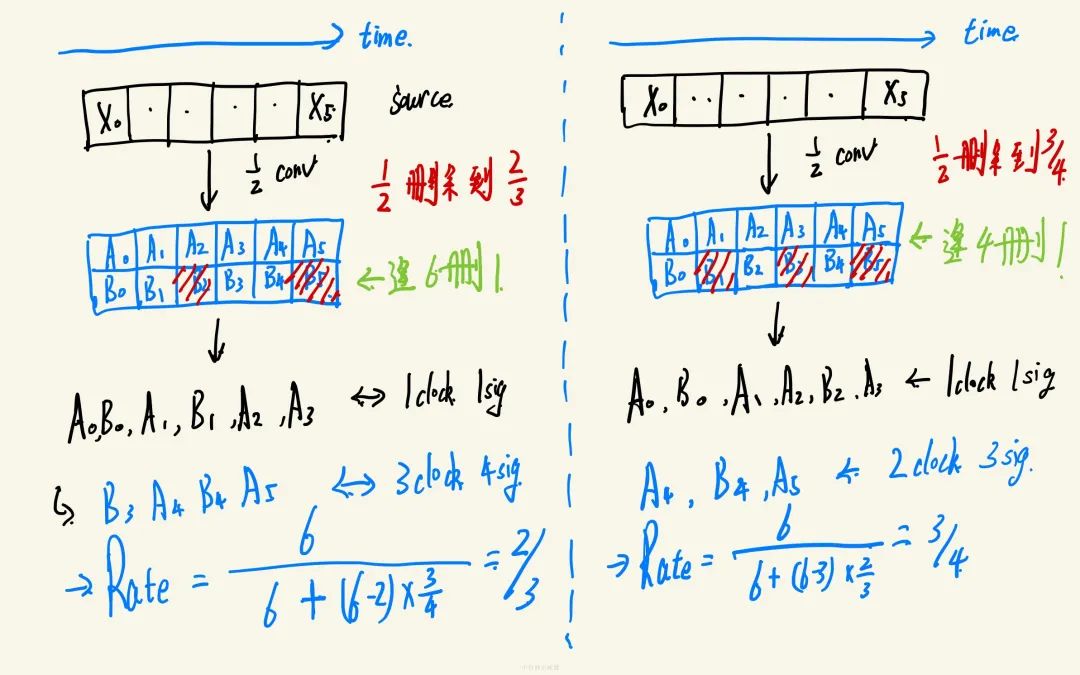 time.
X₀ · · · · X₅ source
1/2 conv
1/2 删余到 2/3
A₀ A₁ A₂ A₃ A₄ A₅
B₀ B₁ B₂ B₃ B₄ B₅
← 逢6删1
A₀,B₀,A₁,B₁,A₂,A₃ ↔ 1clock 1sig
B₃ A₄ B₄ A₅ ↔ 3clock 4sig
→ Rate = 6/(6+(6-2)×3/4) = 2/3
time
X₀ ·· · · · X₅
1/2 conv
1/2 删余到 3/4
A₀ A₁ A₂ A₃ A₄ A₅
B₀ B₁ B₂ B₃ B₄ B₅
← 逢4删1
A₀,B₀,A₁,A₂,B₂,A₃ ← 1clock 1sig
A₄,B₄,A₅ ← 2clock 3sig.
→ Rate = 6/(6+(6-3)×2/3) = 3/4